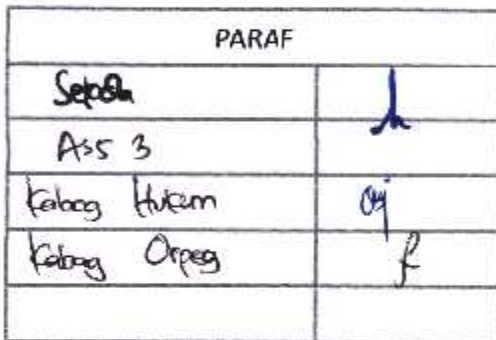 PARAF
Sekda
Ass 3
Kabag Hukum
Kabag Orpeg